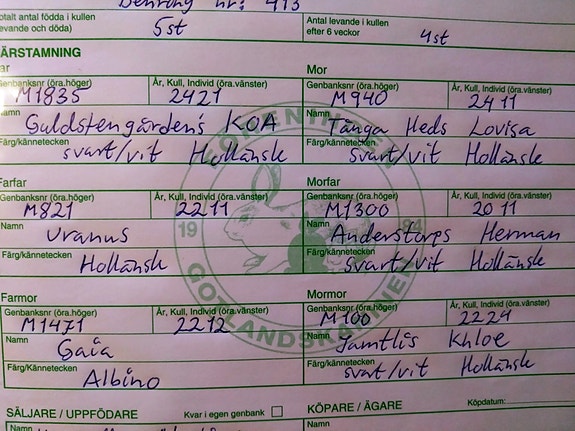 nr: 413
Totalt antal födda i kullen
Antal levande i kullen
(levande och döda)
5st
efter 6 veckor
4st
HÄRSTAMNING
Far
Mor
Genbanksnr (öra.höger)
År, Kull, Individ (öra.vänster)
Genbanksnr (öra.höger)
År, Kull, Individ (öra.vänster)
M1835
2421
M940
2411
Namn
Guldstengårdens KOA
Namn
Tånga Heds Lovisa
Färg/kännetecken
svart/vit Hollänsk
Färg/kännetecken
svart/vit Hollänsk
Farfar
Morfar
Genbanksnr (öra.höger)
År, Kull, Individ (öra.vänster)
Genbanksnr (öra.höger)
År, Kull, Individ (öra.vänster)
M821
2211
M1300
2011
Namn
Uranus
Namn
Anderstorps Herman
Färg/kännetecken
Hollänsk
Färg/kännetecken
svart/vit Hollänsk
Farmor
Mormor
Genbanksnr (öra.höger)
År, Kull, Individ (öra.vänster)
Genbanksnr (öra.höger)
År, Kull, Individ (öra.vänster)
M1471
2212
M100
2224
Namn
Gaia
Namn
Jamtlis Khloe
Färg/Kännetecken
Albino
Färg/kännetecken
svart/vit Hollänsk
FÖRENINGEN
19
94
GOTLANDSKANINEN
SÄLJARE / UPPFÖDARE
Kvar i egen genbank
KÖPARE / ÄGARE
Köpdatum:
Namn
Namn